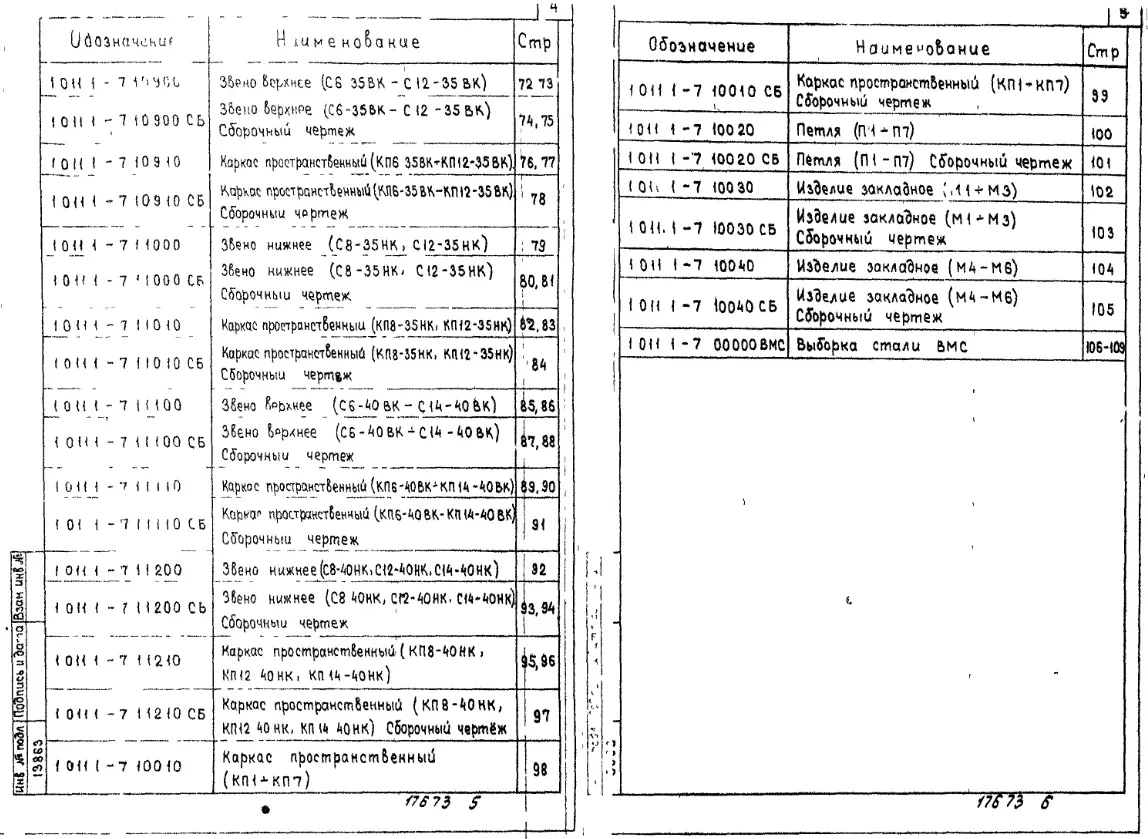 4
Обозначение Наименование Стр
1011 1-7 10900 Звено верхнее (С6 35ВК - С12-35 ВК) 72 73
1011 1-7 10900 СБ Звено верхнее (С6-35ВК - С12-35ВК) 74,75
Сборочный чертеж
1011 1-7 10910 Каркас пространственный (КП6 35ВК÷КП12-35ВК) 76,77
1011 1-7 10910 СБ Каркас пространственный (КП6-35ВК-КП12-35ВК) 78
Сборочный чертеж
1011 1-7 11000 Звено нижнее (С8-35НК, С12-35НК) 79
1011 1-7 11000 СБ Звено нижнее (С8-35НК, С12-35НК) 80,81
Сборочный чертеж
1011 1-7 11010 Каркас пространственный (КП8-35НК, КП12-35НК) 82,83
1011 1-7 11010 СБ Каркас пространственный (КП8-35НК, КП12-35НК) 84
Сборочный чертеж
1011 1-7 11100 Звено верхнее (С6-40ВК - С14-40ВК) 85,86
1011 1-7 11100 СБ Звено верхнее (С6-40ВК÷С14-40ВК) 87,88
Сборочный чертеж
1011 1-7 11110 Каркас пространственный (КП6-40ВК÷КП14-40ВК) 89,90
101 1-7 11110 СБ Каркас пространственный (КП6-40ВК-КП14-40ВК) 91
Сборочный чертеж
1011 1-7 11200 Звено нижнее (С8-40НК, С12-40НК, С14-40НК) 92
1011 1-7 11200 СБ Звено нижнее (С8 40НК, С12-40НК, С14-40НК) 93,94
Сборочный чертеж
1011 1-7 11210 Каркас пространственный (КП8-40НК, 95,96
КП12 40НК, КП14-40НК)
1011 1-7 11210 СБ Каркас пространственный (КП8-40НК, 97
КП12 40НК, КП14 40НК) Сборочный чертёж
1011 1-7 10010 Каркас пространственный 98
(КП1÷КП7)
Инв № подл Подпись и дата Взам инв №
13863
17673 5
5
Обозначение Наименование Стр
1011 1-7 10010 СБ Каркас пространственный (КП1÷КП7) 99
Сборочный чертеж
1011 1-7 10020 Петля (П1÷П7) 100
1011 1-7 10020 СБ Петля (П1-П7) Сборочный чертеж 101
101 1-7 10030 Изделие закладное (М1÷М3) 102
1011. 1-7 10030 СБ Изделие закладное (М1÷М3) 103
Сборочный чертеж
1011 1-7 10040 Изделие закладное (М4-М6) 104
1011 1-7 10040 СБ Изделие закладное (М4-М6) 105
Сборочный чертеж
1011 1-7 00000ВМС Выборка стали ВМС 106-109
17673 6